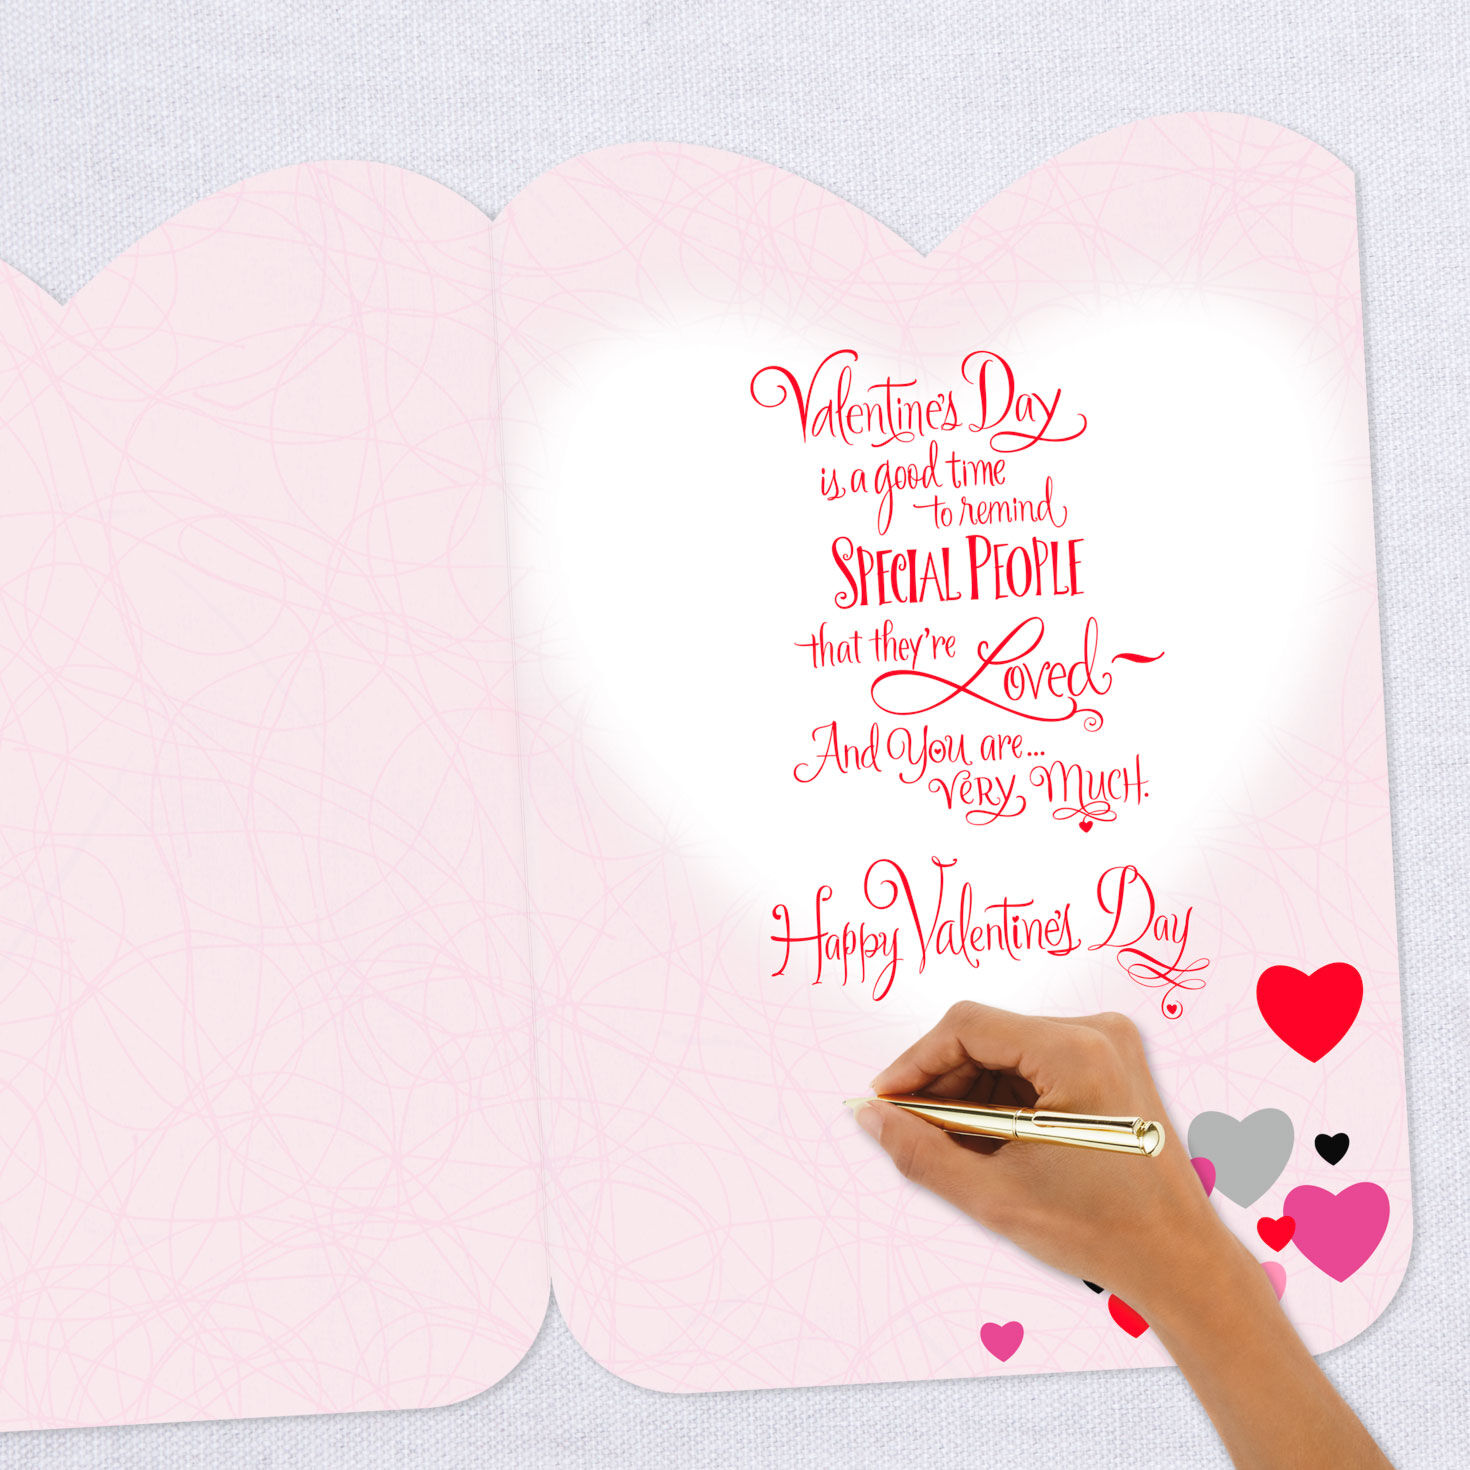 Valentine's Day
is a good time
to remind
SPECIAL PEOPLE
that they're Loved~
And You are...
VERY MUCH.
Happy Valentine's Day